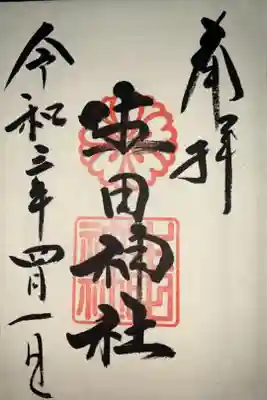 奉拝
生田神社
令和三年四月一日